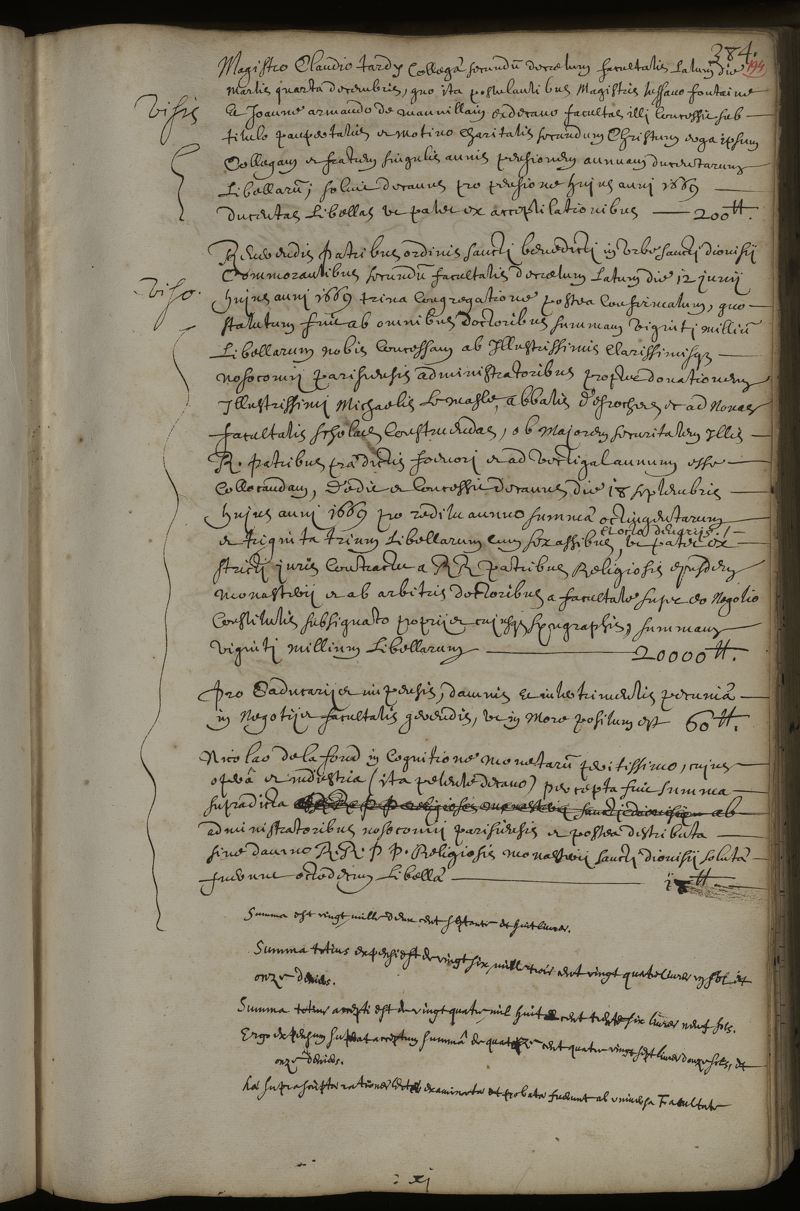 384.
194
Magistro Claudio tardy Collegæ secundū decretum facultatis Latum die
martis quarta decembris, quo ita postulantibus Magistris
Visis
& Joanne armando de mauvillain exdecano facultas illi concessit sub
titulo paupertatis et motivo charitatis secundum Christum erga ipsum
Collegam et fratrem singulis annis pensionem annuam ducentarum
Libellarū; solvit decanus pro pensione hujus anni 1669
ducentas Libellas ut patet ex acceptilationibus — 200 tt.
Reverendis patribus ordinis sancti benedicti in urbe sancti dionisii
Commorantibus secundū facultatis decretum Latum die 12 junii
Viso.
hujus anni 1669 trina Congregatione postea confirmatum, quo
statutum fuit ab omnibus doctoribus summam viginti milliū
Libellarum nobis concessam ab Illustrissimis Clarissimisq;
nosocomii parisiensis administratoribus propter donationem
Illustrissimi Michaelis Lemasle, abbatis desrochers &c ad novas
facultatis scholas construendas, ob majorem securitatem Illis
R. patribus prædictis foenori et ad vectigal annuum esse
collocandam, dedit et concessit decanus die 18 septembris
hujus anni 1669 pro reditu annuo summæ octingentarum
et octo denariis,
et triginta trium Libellarum cum sex assibus, ut patet ex
stricti juris contractu a RR patribus Religiosis ejusdem
monasterii et ab arbitris doctoribus a facultate super eo negotio
constitutis subsignato propriis cujusq; syngraphis, summam
viginti millium Libellarum — 20000 tt.
pro caducariis impensis, damnis et intertrimentis pecuniæ
in negotiis facultatis gerendis, ut in more positum est 60 tt.
Nicolao de la fond in cognitione monetarū peritissimo, cujus
opera et industria (ita petente decano) percepta fuit summa
supradicta ab
administratoribus nosocomii parisiensis et postea distributa
sine damno R.R. P P. Religiosis monasterii sancti dionisii soluta
fuerunt octodecim Libellæ — tt
Summa est vingt mille deux cent septante et huit livres.
Summa totius expensi est de vingt six mille trois cent vingt quatre livres et
onze deniers.
Summa totius accepti est de vingt quatre mil huit cent trente six livres neuf sols.
Ergo expensum superat acceptum summâ de quatorze cent quatre vingt sept livres douze sols, et
onze deniers.
Hæ suprascriptæ rationes lectæ examinatæ et probatæ fuerunt ab universa Facultate
xj